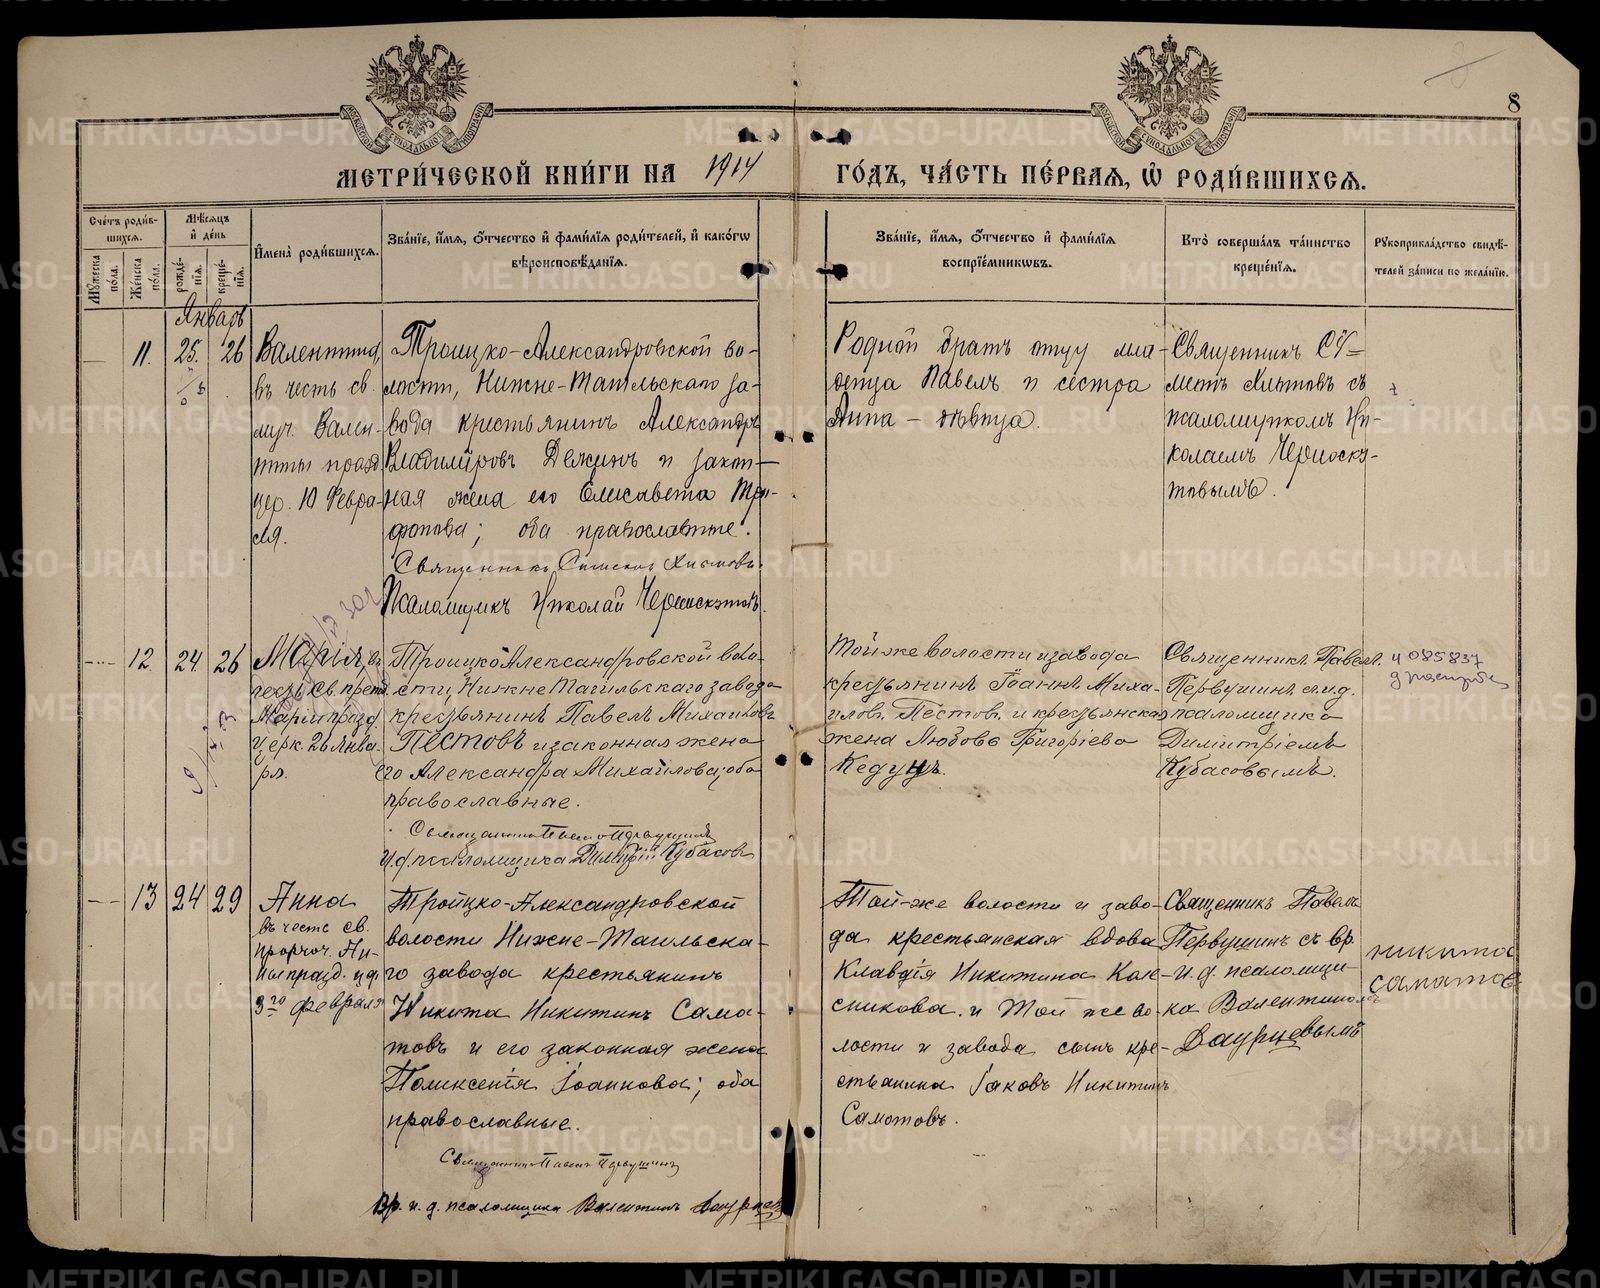 8
МЕТРИ́ЧЕСКОЙ КНИ́ГИ НА 1914 ГО́ДЪ, ЧА́СТЬ ПЕ́РВАЯ, Ѡ РОДИ́ВШИХСЯ.
Сче́тъ роди́в-
шихся.
Мꙋ́жеска по́ла.
Же́нска по́ла.
Мѣ́сяцъ
и҆ де́нь
рожде́-
нїя.
креще́-
нїя.
И҆мена̀ роди́вшихся.
Зва́нїе, и҆́мя, ѻ҆́тчество и҆ фами́лїя роди́телей, и҆ како́гѡ
вѣроисповѣ́данїя.
Зва́нїе, и҆́мя, ѻ҆́тчество и҆ фами́лїя
воспрїе́мникѡвъ.
Кто̀ соверша́лъ та́инство
креще́нїя.
Рꙋкоприкла́дство свидѣ́-
телей за́писи по жела́нїю.
Январь
11. 25. 26
Валентина,
въ честь св.
муч. Вален-
тины празд.
цер. 10 Февра-
ля.
Троицко-Александровской во-
лости, Нижне-Тагильскаго за-
вода крестьянинъ Александръ
Владиміровъ Дежинъ и закон-
ная жена его Елисавета Три-
фонова; оба православные.
Священникъ Симеонъ Хлытовъ.
Псаломщикъ Николай Черноскутовъ.
Родной братъ отцу мла-
денца Павелъ и сестра
Анна – дѣвица.
Священникъ Сѵ-
меонъ Хлытовъ съ
псаломщикомъ Ни-
колаемъ Черноску-
товымъ.
12. 24. 26
Марія, въ
честь Св. преп.
Маріи празд.
Церк. 26 Янва-
ря.
Троицко Александровской воло-
сти, Нижне Тагильскаго завода
крестьянинъ Павелъ Михаиловъ
Пестовъ и законная жена
его Александра Михаилова; оба
православные.
Священникъ Павелъ Первушинъ
И.д. псаломщика Димитрій Кубасовъ
Той же волости и завода
крестьянинъ Іоаннъ Миха-
иловъ Пестовъ и крестьянская
жена Любовь Григоріева
Кедунъ.
Священникъ Павелъ
Первушинъ съ и.д.
псаломщика
Димитріемъ
Кубасовымъ.
085837
13 24 29
Анна
въ честь св.
пророч. Ан-
ны празд. цер.
3го февраля
Тройцко-Александровской
волости Нижне-Тагильска-
го завода крестьянинъ
Никита Никитинъ Сама-
товъ и его законная жена
Поликсенія Іоаннова; оба
православные.
Священникъ Павелъ Первушинъ
Вр. и. д. псаломщика Валентинъ Даурцевъ
Той-же волости и заво-
да крестьянская вдова
Клавдія Никитина Кол-
сникова. и Той же во-
лости и завода сынъ кре-
стьянина Іаковъ Никитинъ
Саматовъ.
Священникъ Павелъ
Первушинъ съ вр.
и. д. псаломщи-
ка Валентиномъ
Даурцевымъ
никита
саматов